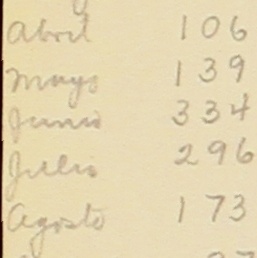 Abril 106
Mayo 139
Junio 334
Julio 296
Agosto 173